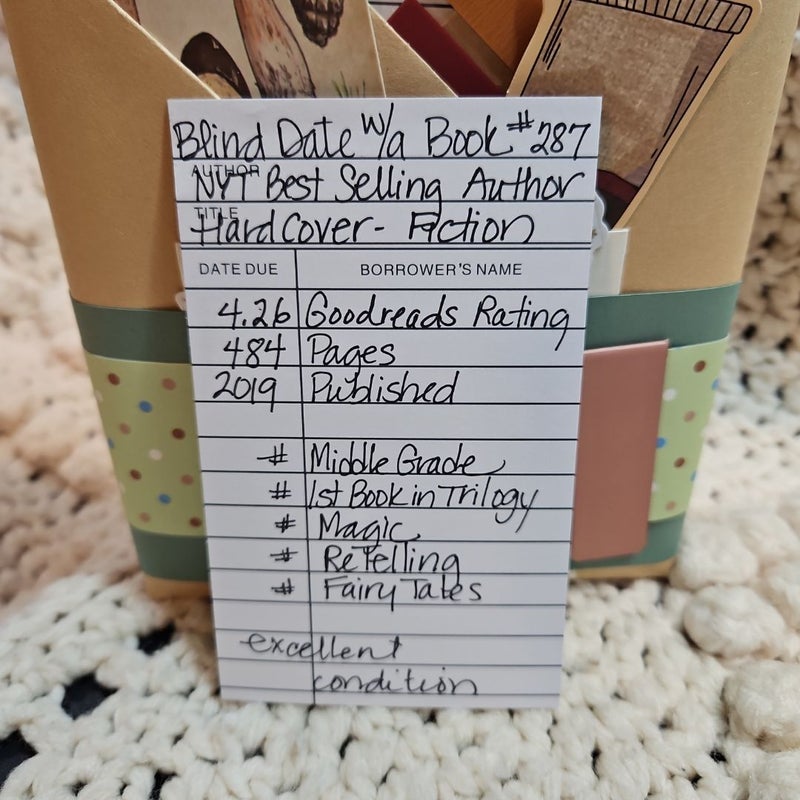 Blind Date w/a Book #287
AUTHOR
NYT Best Selling Author
TITLE
Hardcover- Fiction
DATE DUE BORROWER'S NAME
4.26 Goodreads Rating
484 Pages
2019 Published
# Middle Grade
# 1st Book in Trilogy
# Magic
# ReTelling
# Fairy Tales
excellent
condition